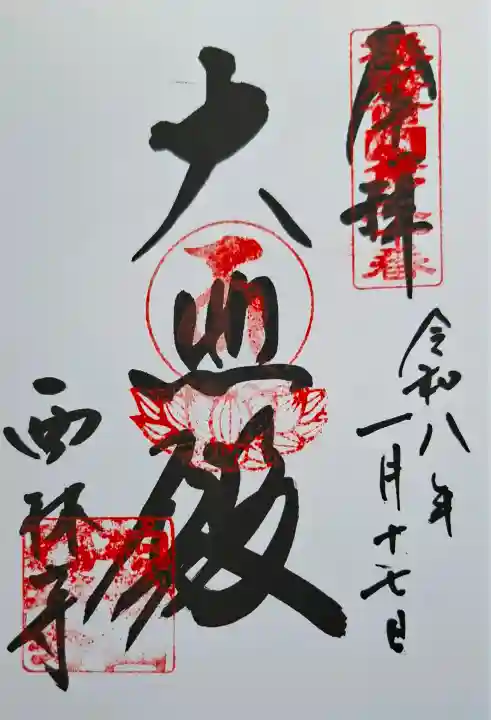 奉拝
令和八年
一月十七日
大悲殿
西林寺